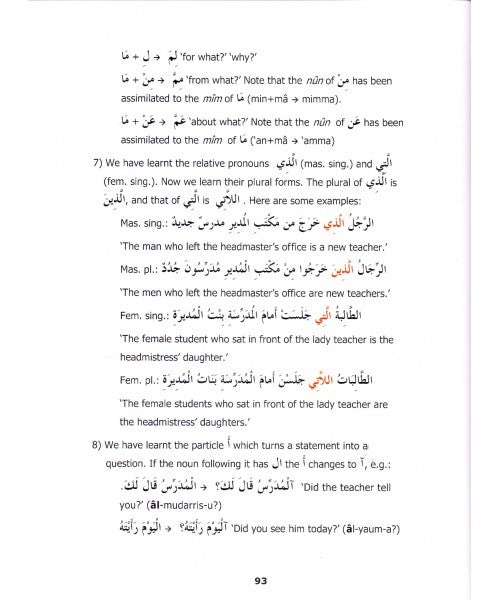 مَا + لِ → لِمَ 'for what?' 'why?'
مَا + مِنْ → مِمَّ 'from what?' Note that the nûn of مِنْ has been
assimilated to the mîm of مَا (min+mâ → mimma).
مَا + عَنْ → عَمَّ 'about what?' Note that the nûn of عَن has been
assimilated to the mîm of مَا ('an+mâ → 'amma)
7) We have learnt the relative pronouns الَّذِي (mas. sing.) and الَّتِي
(fem. sing.). Now we learn their plural forms. The plural of الَّذِي is
الَّذِينَ, and that of الَّتِي is اللاَّتِي . Here are some examples:
Mas. sing.: الرَّجُلُ الَّذِي خَرَجَ من مَكْتَبِ الْمدِيرِ مدرسٌ جديدٌ
'The man who left the headmaster's office is a new teacher.'
Mas. pl.: الرِّجَالُ الَّذِينَ خَرَجُوا مِنْ مَكْتَبِ الْمُدِيرِ مُدَرِّسُونَ جُدُدٌ
'The men who left the headmaster's office are new teachers.'
Fem. sing.: الطَّالِبَةُ الَّتِي جَلَسَتْ أَمامَ الْمُدَرِّسَةِ بِنْتُ الْمُدِيرَةِ
'The female student who sat in front of the lady teacher is the
headmistress' daughter.'
Fem. pl.: الطَّالِبَاتُ اللاَّتِي جَلَسْنَ أَمَامَ الْمُدَرِّسَةِ بَنَاتُ الْمُدِيرَةِ
'The female students who sat in front of the lady teacher are
the headmistress' daughters.'
8) We have learnt the particle أَ which turns a statement into a
question. If the noun following it has ال the أَ changes to آ, e.g.:
الْمُدَرِّسُ قَالَ لَكَ. → آلْمُدَرِّسُ قَالَ لَكَ؟ 'Did the teacher tell
you?' (âl-mudarris-u?)
الْيَوْمَ رَأَيْتَهُ → آلْيَوْمَ رَأَيْتَهُ؟ 'Did you see him today?' (âl-yaum-a?)
93